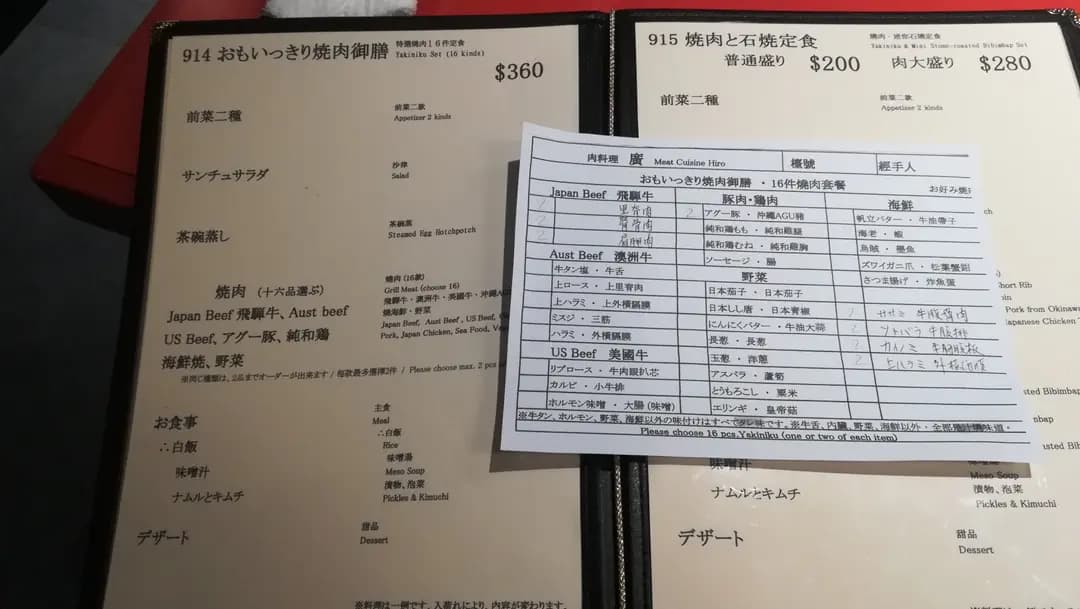 914 おもいっきり焼肉御膳
特選焼肉16件定食
Yakiniku Set (16 kinds)
$360
前菜二種
前菜二款
Appetizer 2 kinds
サンチュサラダ
沙律
Salad
茶碗蒸し
茶碗蒸
Steamed Egg Hotchpotch
焼肉 (十六品選ぶ)
Japan Beef 飛騨牛、Aust beef
US Beef, アグー豚、純和鶏
海鮮焼、野菜
焼肉 (16款)
Grill Meat (choose 16)
飛騨牛・澳洲牛・美國牛・沖繩A
焼海鮮・野菜
Japan Beef, Aust Beef, US Beef,
Pork, Japan Chicken, Sea Food, Ve
※同じ種類は、2品までオーダーが出来ます / 每款最多選2件 / Please choose max. 2 pcs
お食事
主食
Meal
∴白飯
∴白飯
Rice
味噌汁
味噌湯
Meso Soup
ナムルとキムチ
漬物、泡菜
Pickles & Kimuchi
デザート
甜品
Dessert
※料理は一例です。入荷れにより、内容が変わります。
915 焼肉と石焼定食
焼肉・迷你石窩定食
Yakiniku & Mini Stone-roasted Bibimbap Set
普通盛り $200 肉大盛り $280
前菜二種
前菜二款
Appetizer 2 kinds
肉料理 廣 Meat Cuisine Hiro
檯號
經手人
おもいっきり焼肉御膳 ・16件焼肉套餐
お好み焼
Japan Beef 飛騨牛
2
2
2
Aust Beef 澳洲牛
牛タン塩・牛舌
上ロース・上里脊肉
上ハラミ・上外橫膈膜
ミスジ・三筋
ハラミ・外橫膈膜
US Beef 美國牛
リブロース・牛肉眼扒芯
カルビ・小牛排
ホルモン味噌・大腸 (味噌)
豚肉・鶏肉
2 アグー豚・沖繩AGU豬
純和鶏もも・純和雞腿
純和鶏むね・純和雞胸
ソーセージ・腸
野菜
日本茄子・日本茄子
日本しし唐・日本青椒
にんにくバター・牛油大蒜
長葱・長葱
玉葱・洋葱
アスパラ・蘆筍
とうもろこし・粟米
エリンギ・皇帝菇
海鮮
帆立バター・牛油帶子
海老・蝦
烏賊・墨魚
ズワイガニ爪・松葉蟹鉗
さつま揚げ・炸魚蛋
2
2
2
2
※牛タン、ホルモン、野菜、海鮮以外の味付けはすべてタレ味です。※牛舌、内臓、野菜、海鮮以外・全部是汁燒味道。
Please choose 16 pcs.Yakiniku (one or two of each item)
hort Rib
Pork from Okinawa
apanese Chicken
味噌汁
Meso Soup
ナムルとキムチ
漬物、泡菜
Pickles & Kimuchi
デザート
甜品
Dessert